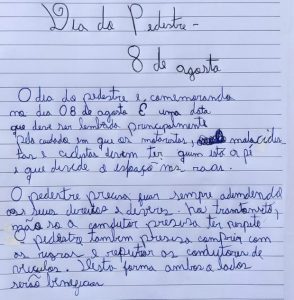 Dia do Pedestre -
8 de agosto
O dia do pedestre e comemorando
no dia 08 de agosto É uma data
que deve ser lembrada principalmente
pelo cuidado em que os motoristas,
tas e ciclistas devem ter quem isto a pé
e que divide o espaço nas ruas.
O pedertre precisa ficar sempre
os seus direitos e deveres. na
não so a condutor precisa ter
O pedestre também precisa cumprir com
os regras e respeitar os condutores de
veiculos. Desta forma ambos a lados
serão